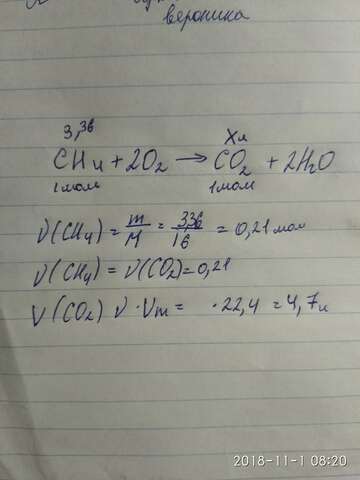 вероника
3,36 Xл
CH4 + 2O2 → CO2 + 2H2O
1моль 1моль
ν(CH4) = m/M = 3,36/16 = 0,21 моль
ν(CH4) = ν(CO2) = 0,21
V(CO2) ν · Vm = · 22,4 = 4,7л
2018-11-1 08:20